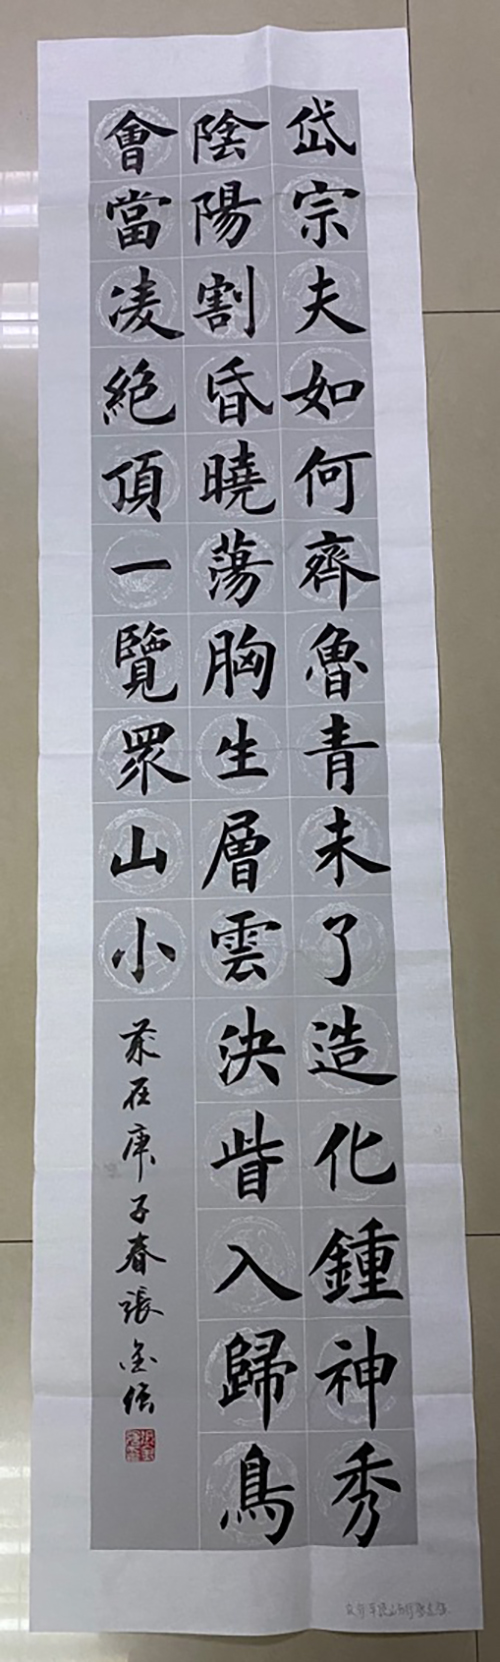 岱宗夫如何齊魯青未了造化鍾神秀
陰陽割昏曉蕩胸生層雲決眥入歸鳥
會當凌絕頂一覽眾山小
歲在庚子春張